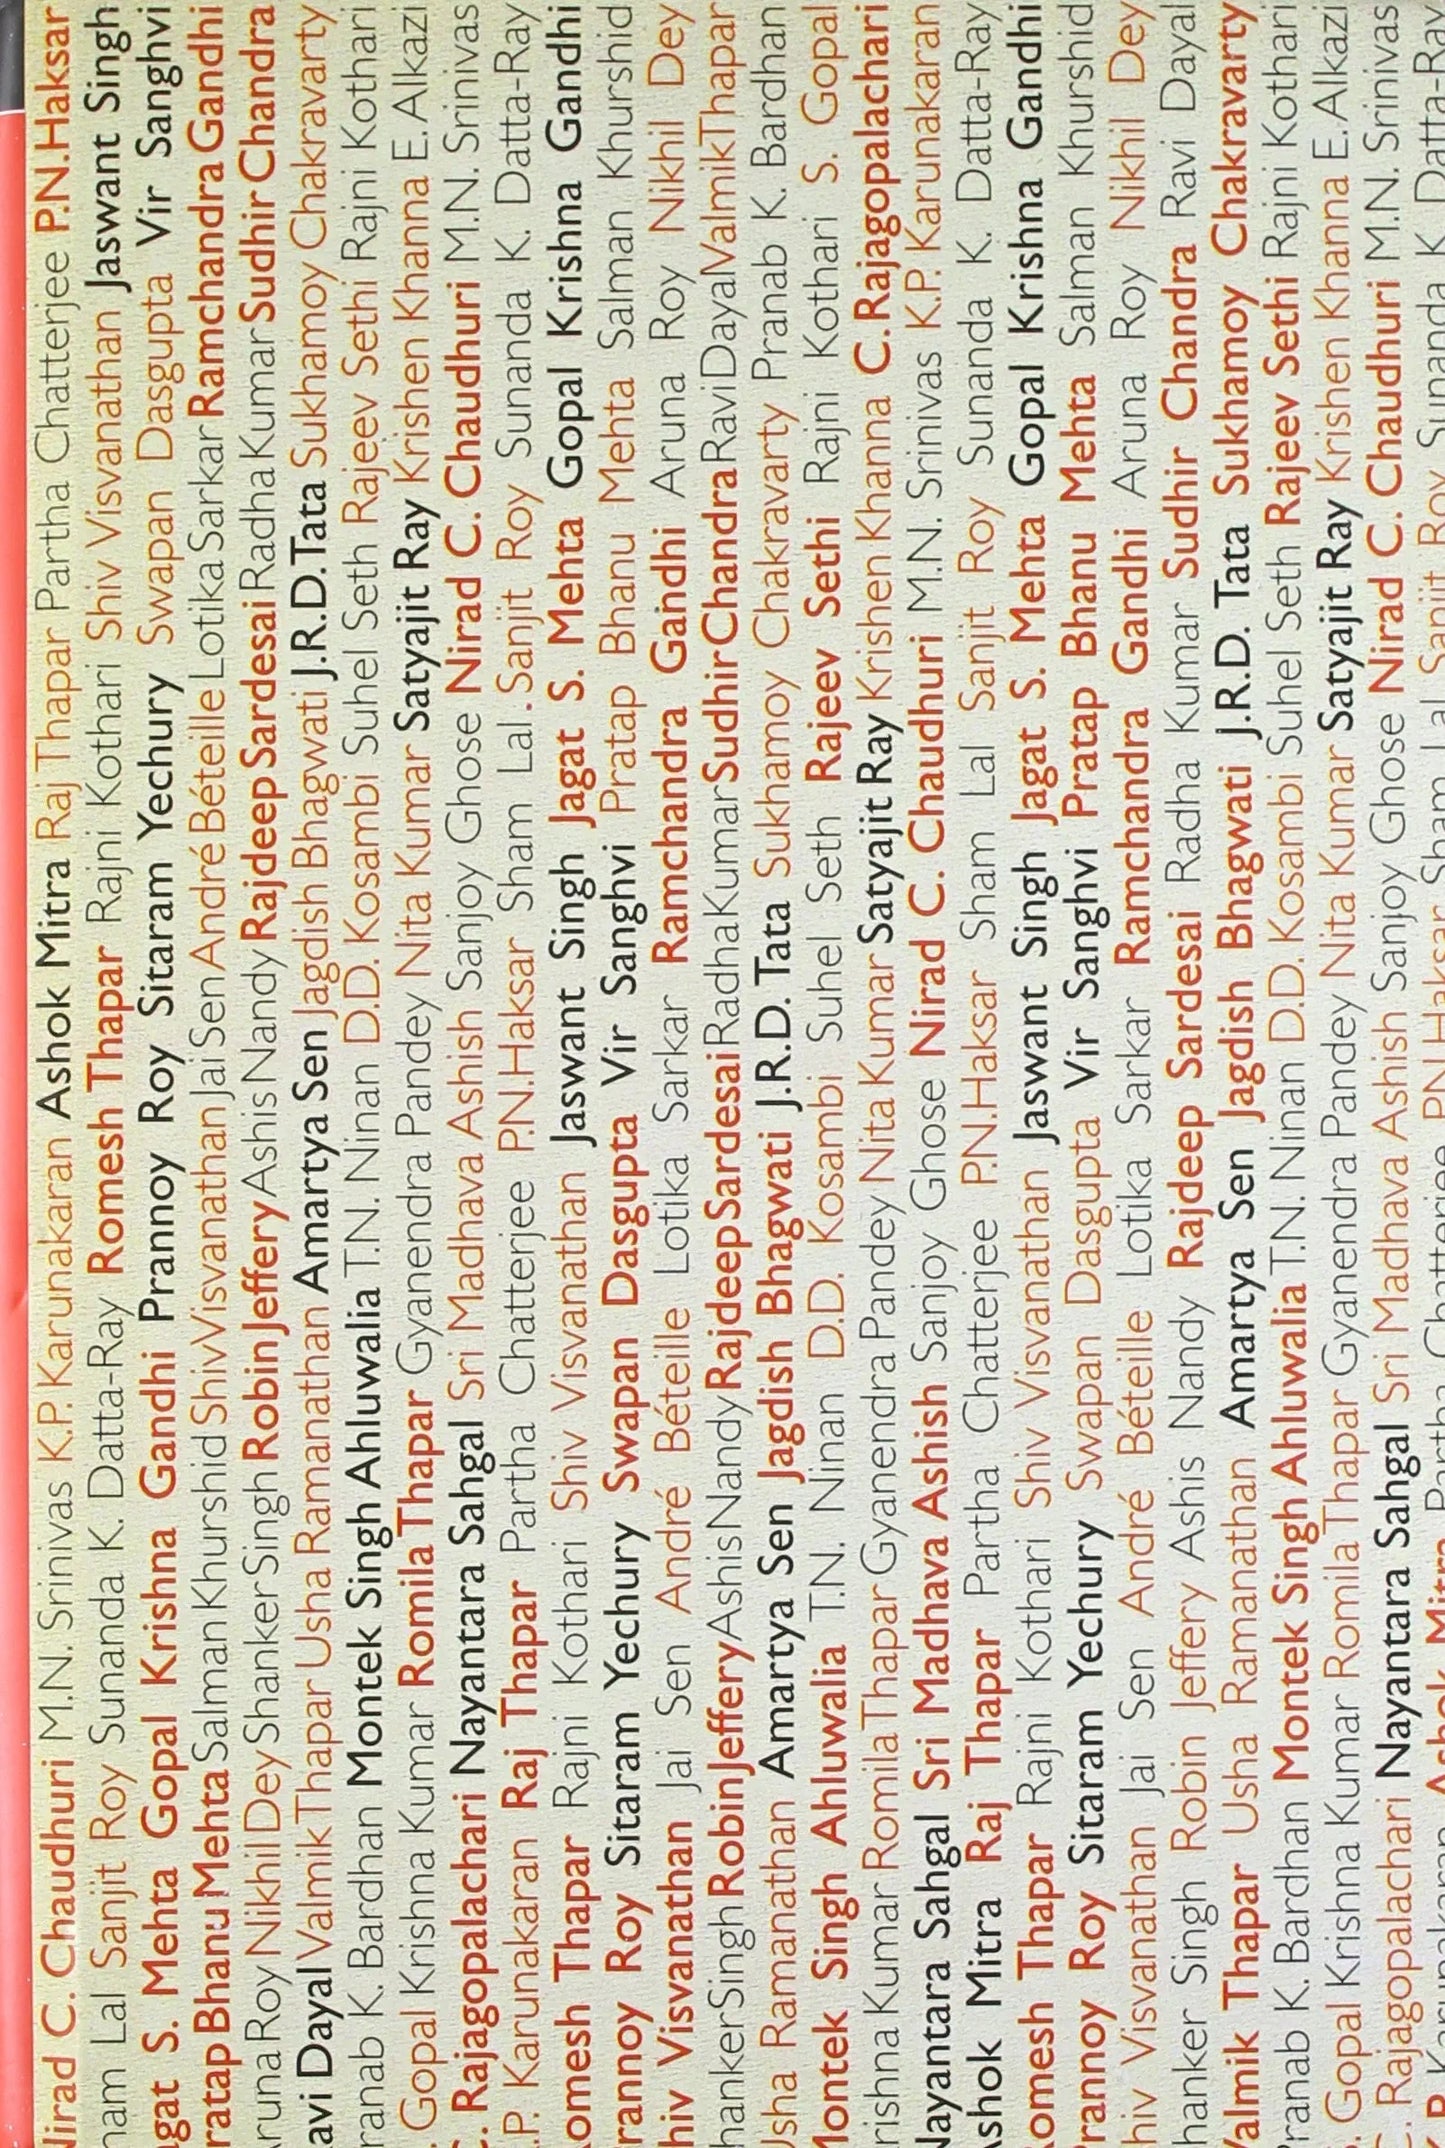 Nirad C. Chaudhuri M.N. Srinivas K.P. Karunakaran Ashok Mitra Raj Thapar Partha Chatterjee P.N.Haksar
Lal Sanjit Roy Sunanda K. Datta-Ray Romesh Thapar Rajni Kothari Shiv Visvanathan Jaswant Singh
S. Mehta Gopal Krishna Gandhi Prannoy Roy Sitaram Yechury Swapan Dasgupta Vir Sanghvi
Bhanu Mehta Salman Khurshid Shiv Visvanathan Jai Sen André Béteille Lotika Sarkar Ramchandra Gandhi
Roy Nikhil Dey Shanker Singh Robin Jeffery Ashis Nandy Rajdeep Sardesai Radha Kumar Sudhir Chandra
Dayal Valmik Thapar Usha Ramanathan Amartya Sen Jagdish Bhagwati J.R.D.Tata Sukhamoy Chakravarty
K. Bardhan Montek Singh Ahluwalia T.N. Ninan D.D. Kosambi Suhel Seth Rajeev Sethi Rajni Kothari
. Gopal Krishna Kumar Romila Thapar Gyanendra Pandey Nita Kumar Satyajit Ray Krishen Khanna E.Alkazi
C. Rajagopalachari Nayantara Sahgal Sri Madhava Ashish Sanjoy Ghose Nirad C. Chaudhuri M.N. Srinivas
.P. Karunakaran Raj Thapar Partha Chattterjee P.N.Haksar Sham Lal . Sanjit Roy Sunanda K. Datta-Ray
omesh Thapar Rajni Kothari Shiv Visvanathan Jaswant Singh Jagat S. Mehta Gopal Krishna Gandhi
rannoy Roy Sitaram Yechury Swapan Dasgupta Vir Sanghvi Pratap Bhanu Mehta Salman Khurshid
hiv Visvanathan Jai Sen André Béteille Lotika Sarkar Ramchandra Gandhi Aruna Roy Nikhil Dey
hanker Singh Robin Jeffery Ashis Nandy Rajdeep Sardesai Radha Kumar Sudhir Chandra Ravi Dayal Valmik Thapar
Usha Ramanathan Amartya Sen Jagdish Bhagwati J.R.D. Tata Sukhamoy Chakravarty Pranab K. Bardhan
Montek Singh Ahluwalia T.N. Ninan D.D. Kosambi Suhel Seth Rajeev Sethi Rajni Kothari S. Gopal
rishna Kumar Romila Thapar Gyanendra Pandey Nita Kumar Satyajit Ray Krishen Khanna C.Rajagopalachari
Nayantara Sahgal Sri Madhava Ashish Sanjoy Ghose Nirad C. Chaudhuri M.N. Srinivas K.P. Karunakaran
Ashok Mitra Raj Thapar Partha Chatterjee P.N.Haksar Sham Lal Sanjit Roy Sunanda K. Datta-Ray
omesh Thapar Rajni Kothari Shiv Visvanathan Jaswant Singh Jagat S. Mehta Gopal Krishna Gandhi
Prannoy Roy Sitaram Yechury Swapan Dasgupta Vir Sanghvi Pratap Bhanu Mehta Salman Khurshid
hiv Visvanathan Jai Sen André Béteille Lotika Sarkar Ramchandra Gandhi Aruna Roy Nikhil Dey
hanker Singh Robin Jeffery Ashis Nandy Rajdeep Sardesai Radha Kumar Sudhir Chandra Ravi Dayal
Valmik Thapar Usha Ramanathan Amartya Sen Jagdish Bhagwati J.R.D. Tata Sukhamoy Chakravarty
Pranab K. Bardhan Montek Singh Ahluwalia T.N. Ninan D.D. Kosambi Suhel Seth Rajeev Sethi Rajni Kothari
. Gopal Krishna Kumar Romila Thapar Gyanendra Pandey Nita Kumar Satyajit Ray Krishen Khanna E.Alkazi
C. Rajagopalachari Nayantara Sahgal Sri Madhava Ashish Sanjoy Ghose Nirad C. Chaudhuri M.N. Srinivas
Karunakaran Ashok Mitra Partha Chatterjee P.N.Haksar Sham Lal Sanjit Roy Sunanda K. Datta-Ray